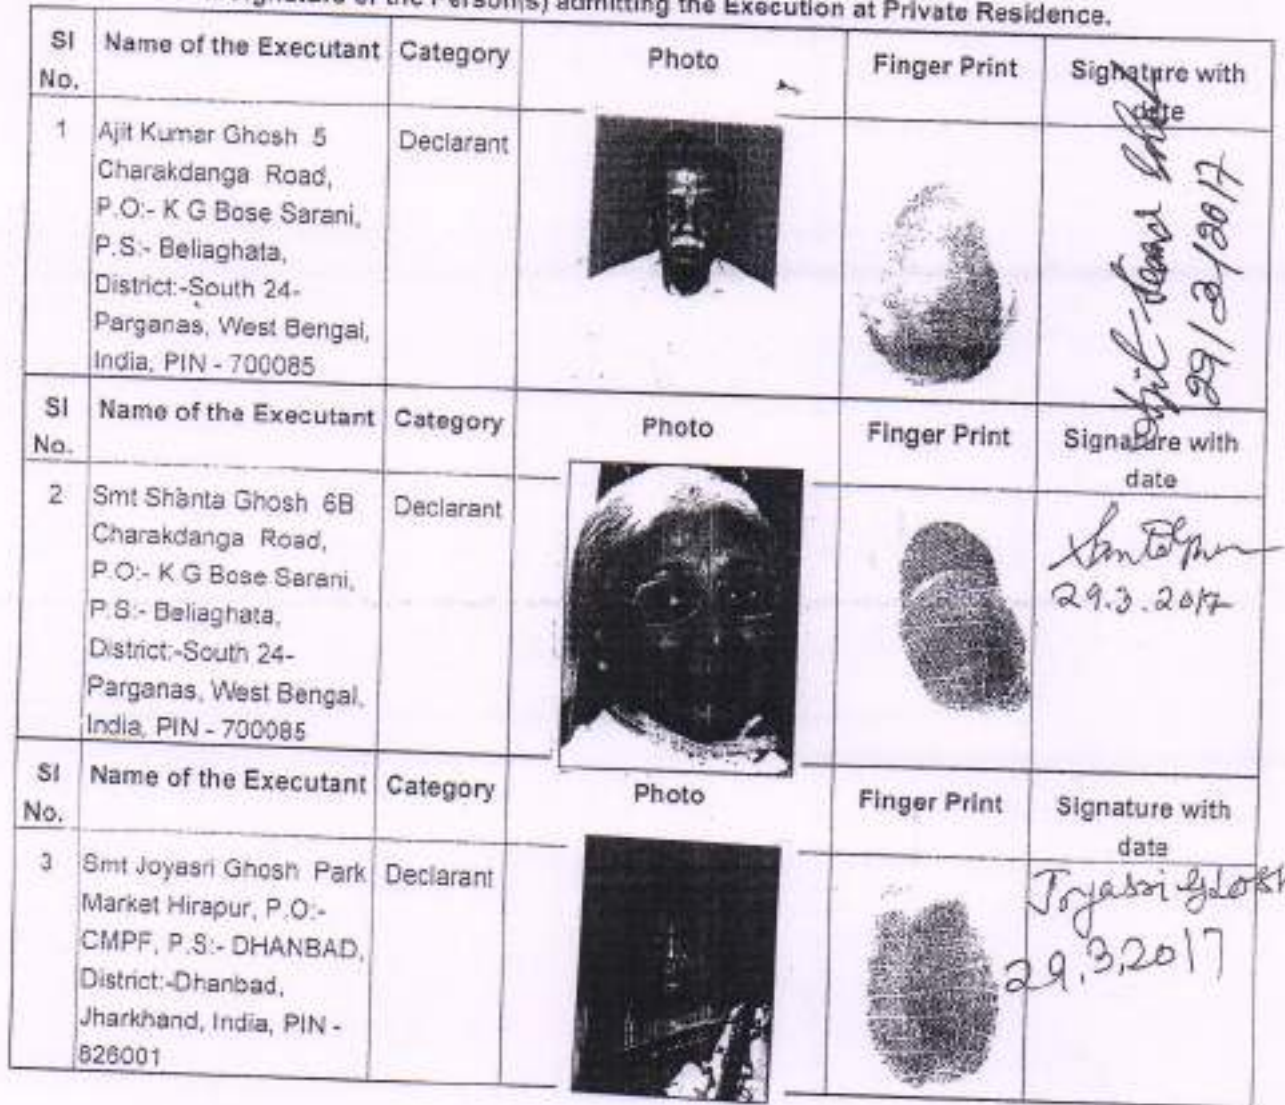 Signature of the Person(s) admitting the Execution at Private Residence.
Sl No. Name of the Executant Category Photo Finger Print Signature with date
1 Ajit Kumar Ghosh 5 Declarant
Charakdanga Road,
P.O:- K G Bose Sarani,
P.S:- Beliaghata,
District:-South 24-
Parganas, West Bengal,
India, PIN - 700085
Ajit Kumar Ghosh
29/3/2017
Sl No. Name of the Executant Category Photo Finger Print Signature with date
2 Smt Shanta Ghosh 6B Declarant
Charakdanga Road,
P.O:- K G Bose Sarani,
P.S:- Beliaghata,
District:-South 24-
Parganas, West Bengal,
India, PIN - 700085
29.3.2017
Sl No. Name of the Executant Category Photo Finger Print Signature with date
3 Smt Joyasri Ghosh Park Declarant
Market Hirapur, P.O:-
CMPF, P.S:- DHANBAD,
District:-Dhanbad,
Jharkhand, India, PIN -
826001
Joyasri Ghosh
29.3.2017